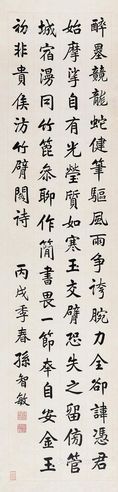 醉墨競龍蛇健筆驅風雨争誇腕力全卻諱憑君
始摩挲自有光瑩質如寒玉交臂恐失之留俻管
城宿漫同竹篦叅聊作簡書畏一節本自安金玉
初非貴侯汸竹臂閣詩 丙戌季春孫智敏